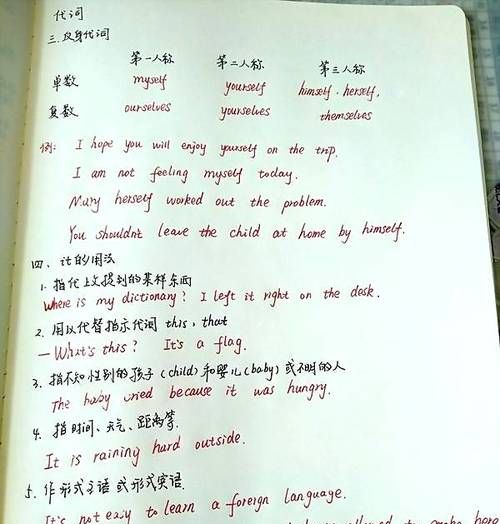 代词
三. 反身代词
第一人称 第二人称 第三人称
单数 myself yourself himself . herself,
复数 ourselves yourselves themselves
例: I hope you will enjoy yourself on the trip.
I am not feeling myself today.
Mary herself worked out the problem.
You shouldn't leave the child at home by himself.
四、it的用法
1. 指代上文提到的某样东西
Where is my dictionary? I left it right on the desk.
2. 用以代替指示代词 this, that
— What's this? It's a flag.
3. 指不知性别的孩子(child)和婴儿(baby)或不明的人
The baby cried because it was hungry.
4. 指时间、天气、距离等.
It is raining hard outside.
5. 作形式主语或形式宾语.
It's not easy to learn a foreign language.
allowed to smoke here